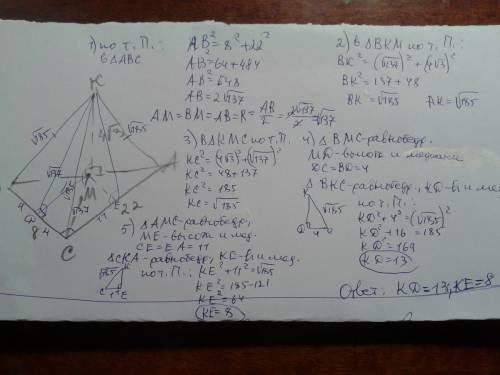 1) по т. П.:
в ΔABC
AB² = 8² + 22²
AB² = 64 + 484
AB² = 548
AB = 2√137
AM = BM = AB = R = AB/2 = 2√137/2 = √137
2) В ΔBKM по т. П.:
BK² = (√137)² + (4√3)²
BK² = 137 + 48
BK = √185 AK = √185
3) В ΔKMC по т. П.
KC² = (4√3)² + (√137)²
KC² = 48 + 137
KC² = 185
KC = √185
4) Δ BMC - равнобедр.
MD - высота и медиана
DC = BD = 4
Δ BKC - равнобедр., KD - в и мед
по т. П.:
KD² + 4² = (√185)²
KD² + 16 = 185
KD² = 169
KD = 13
5) Δ AMC - равнобедр,
ME - высота и мед.
CE = EA = 11
ΔCKA - равнобедр, KE - в и мед.
по т. П.: KE² + 11² = √185
KE² = 185 - 121
KE² = 64
KE = 8
Ответ: KD = 13, KE = 8
K
√185
√185
√137
√185
√137
M
E
4
D
8
4
C
11
22
√185
D
4
√185
K
C
11
E